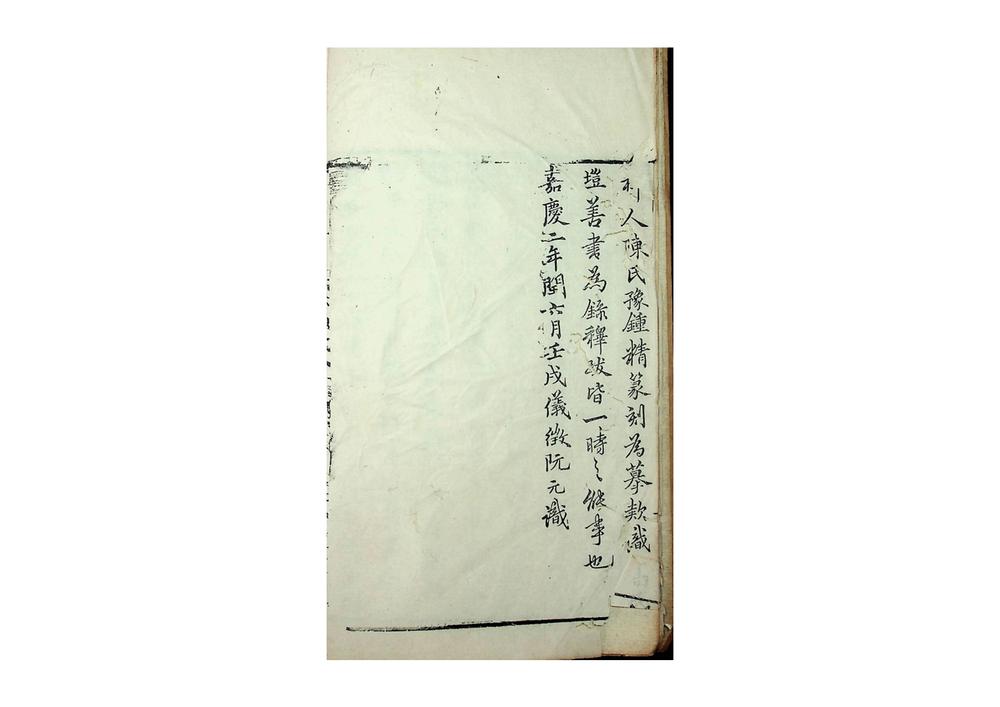 人陳氏豫鍾精篆刻為摹款識
塏善書為錄釋跋皆一時之能事也
嘉慶二年閏六月壬戌儀徵阮元識